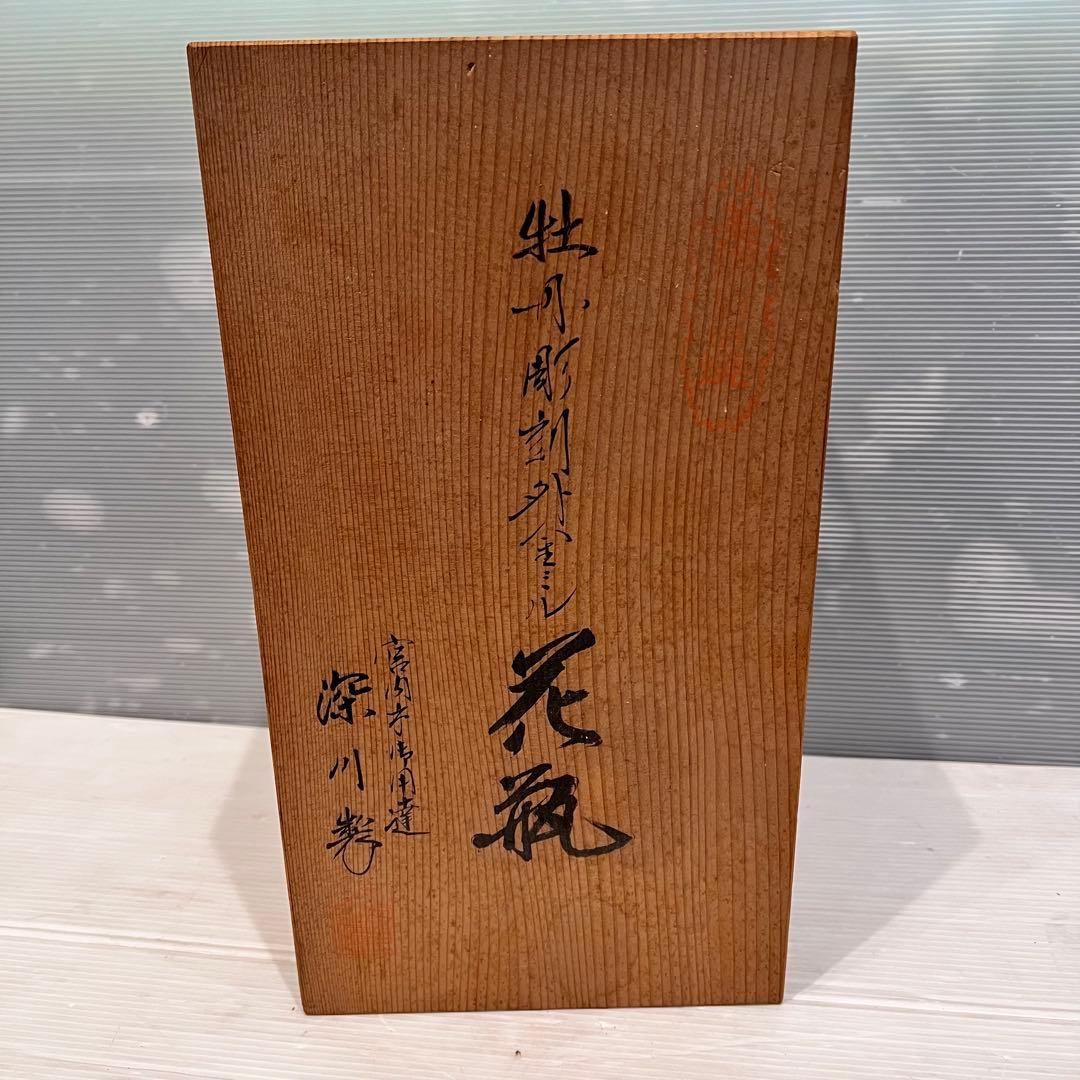 牡丹彫刻外金ミル
花瓶
宮内庁御用達
深川製